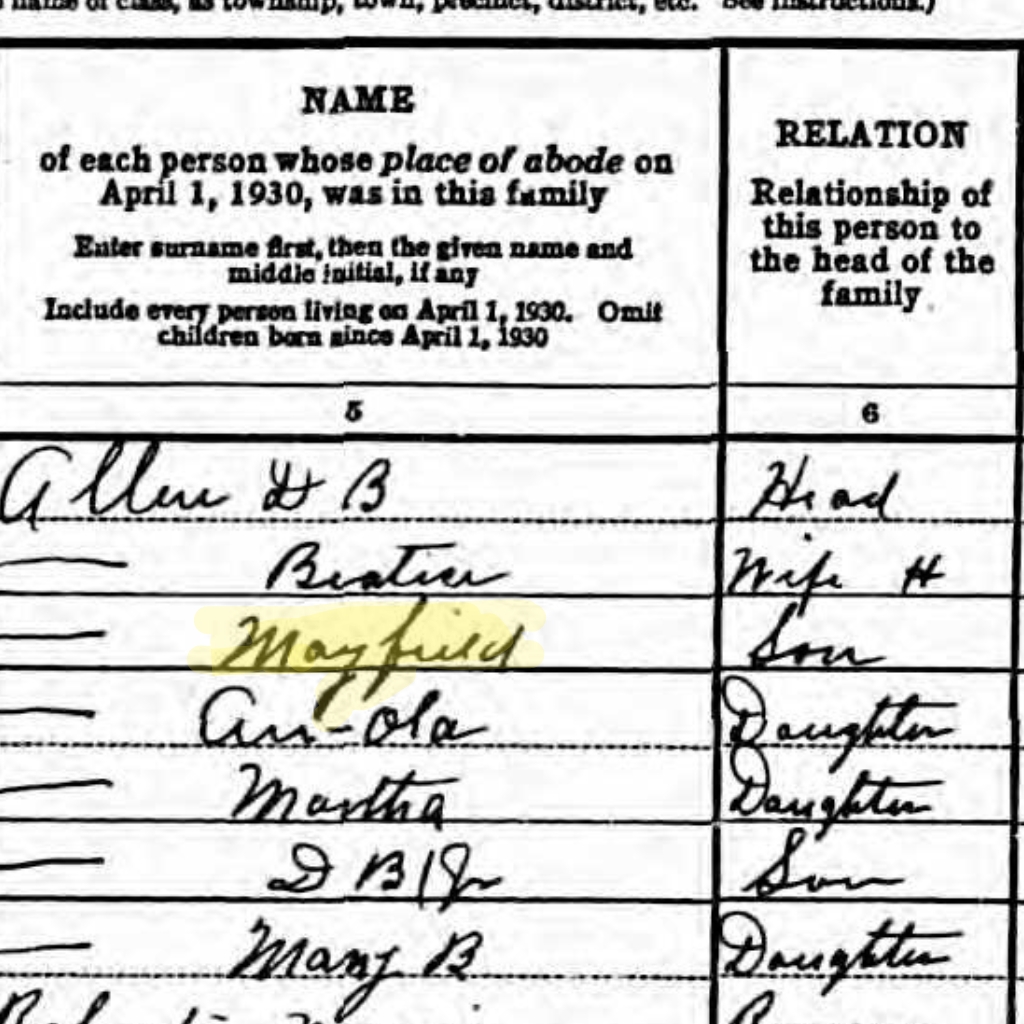 name of class, as township, town, precinct, district, etc. See instructions.)
NAME
of each person whose place of abode on
April 1, 1930, was in this family
Enter surname first, then the given name and
middle initial, if any
Include every person living on April 1, 1930. Omit
children born since April 1, 1930
RELATION
Relationship of
this person to
the head of the
family
5 6
Allen D B Head
— Beatice Wife H
— Mayfield Son
— An-Ola Daughter
— Martha Daughter
— D B Jr Son
— Mary B Daughter